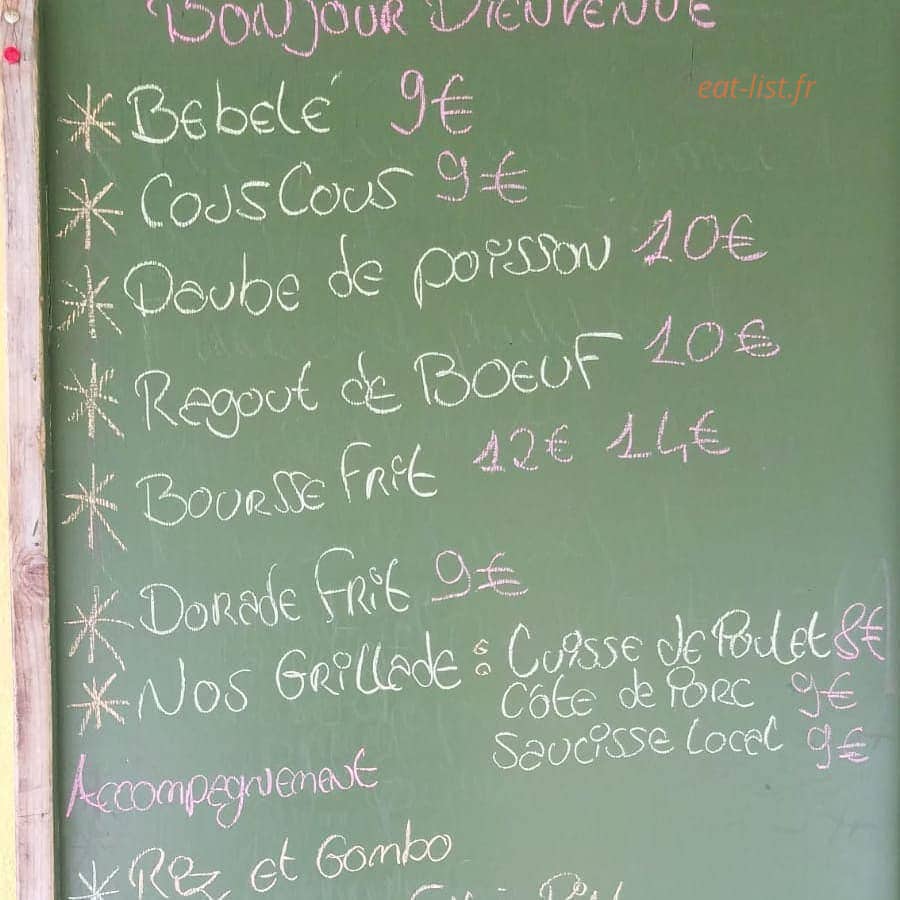 BONJOUR BIENVENUE
eat-list.fr
* BEBELÉ 9€
* COUSCOUS 9€
* Daube de poisson 10€
* Ragout de BOEUF 10€
* BOURSSE FRIt 12€ 14€
* DORADE FRIt 9€
* NOS GRillade : Cuisse de Poulet 8€
Côte de PORC 9€
Saucisse Local 9€
Accompagnement
* Riz et Gombo